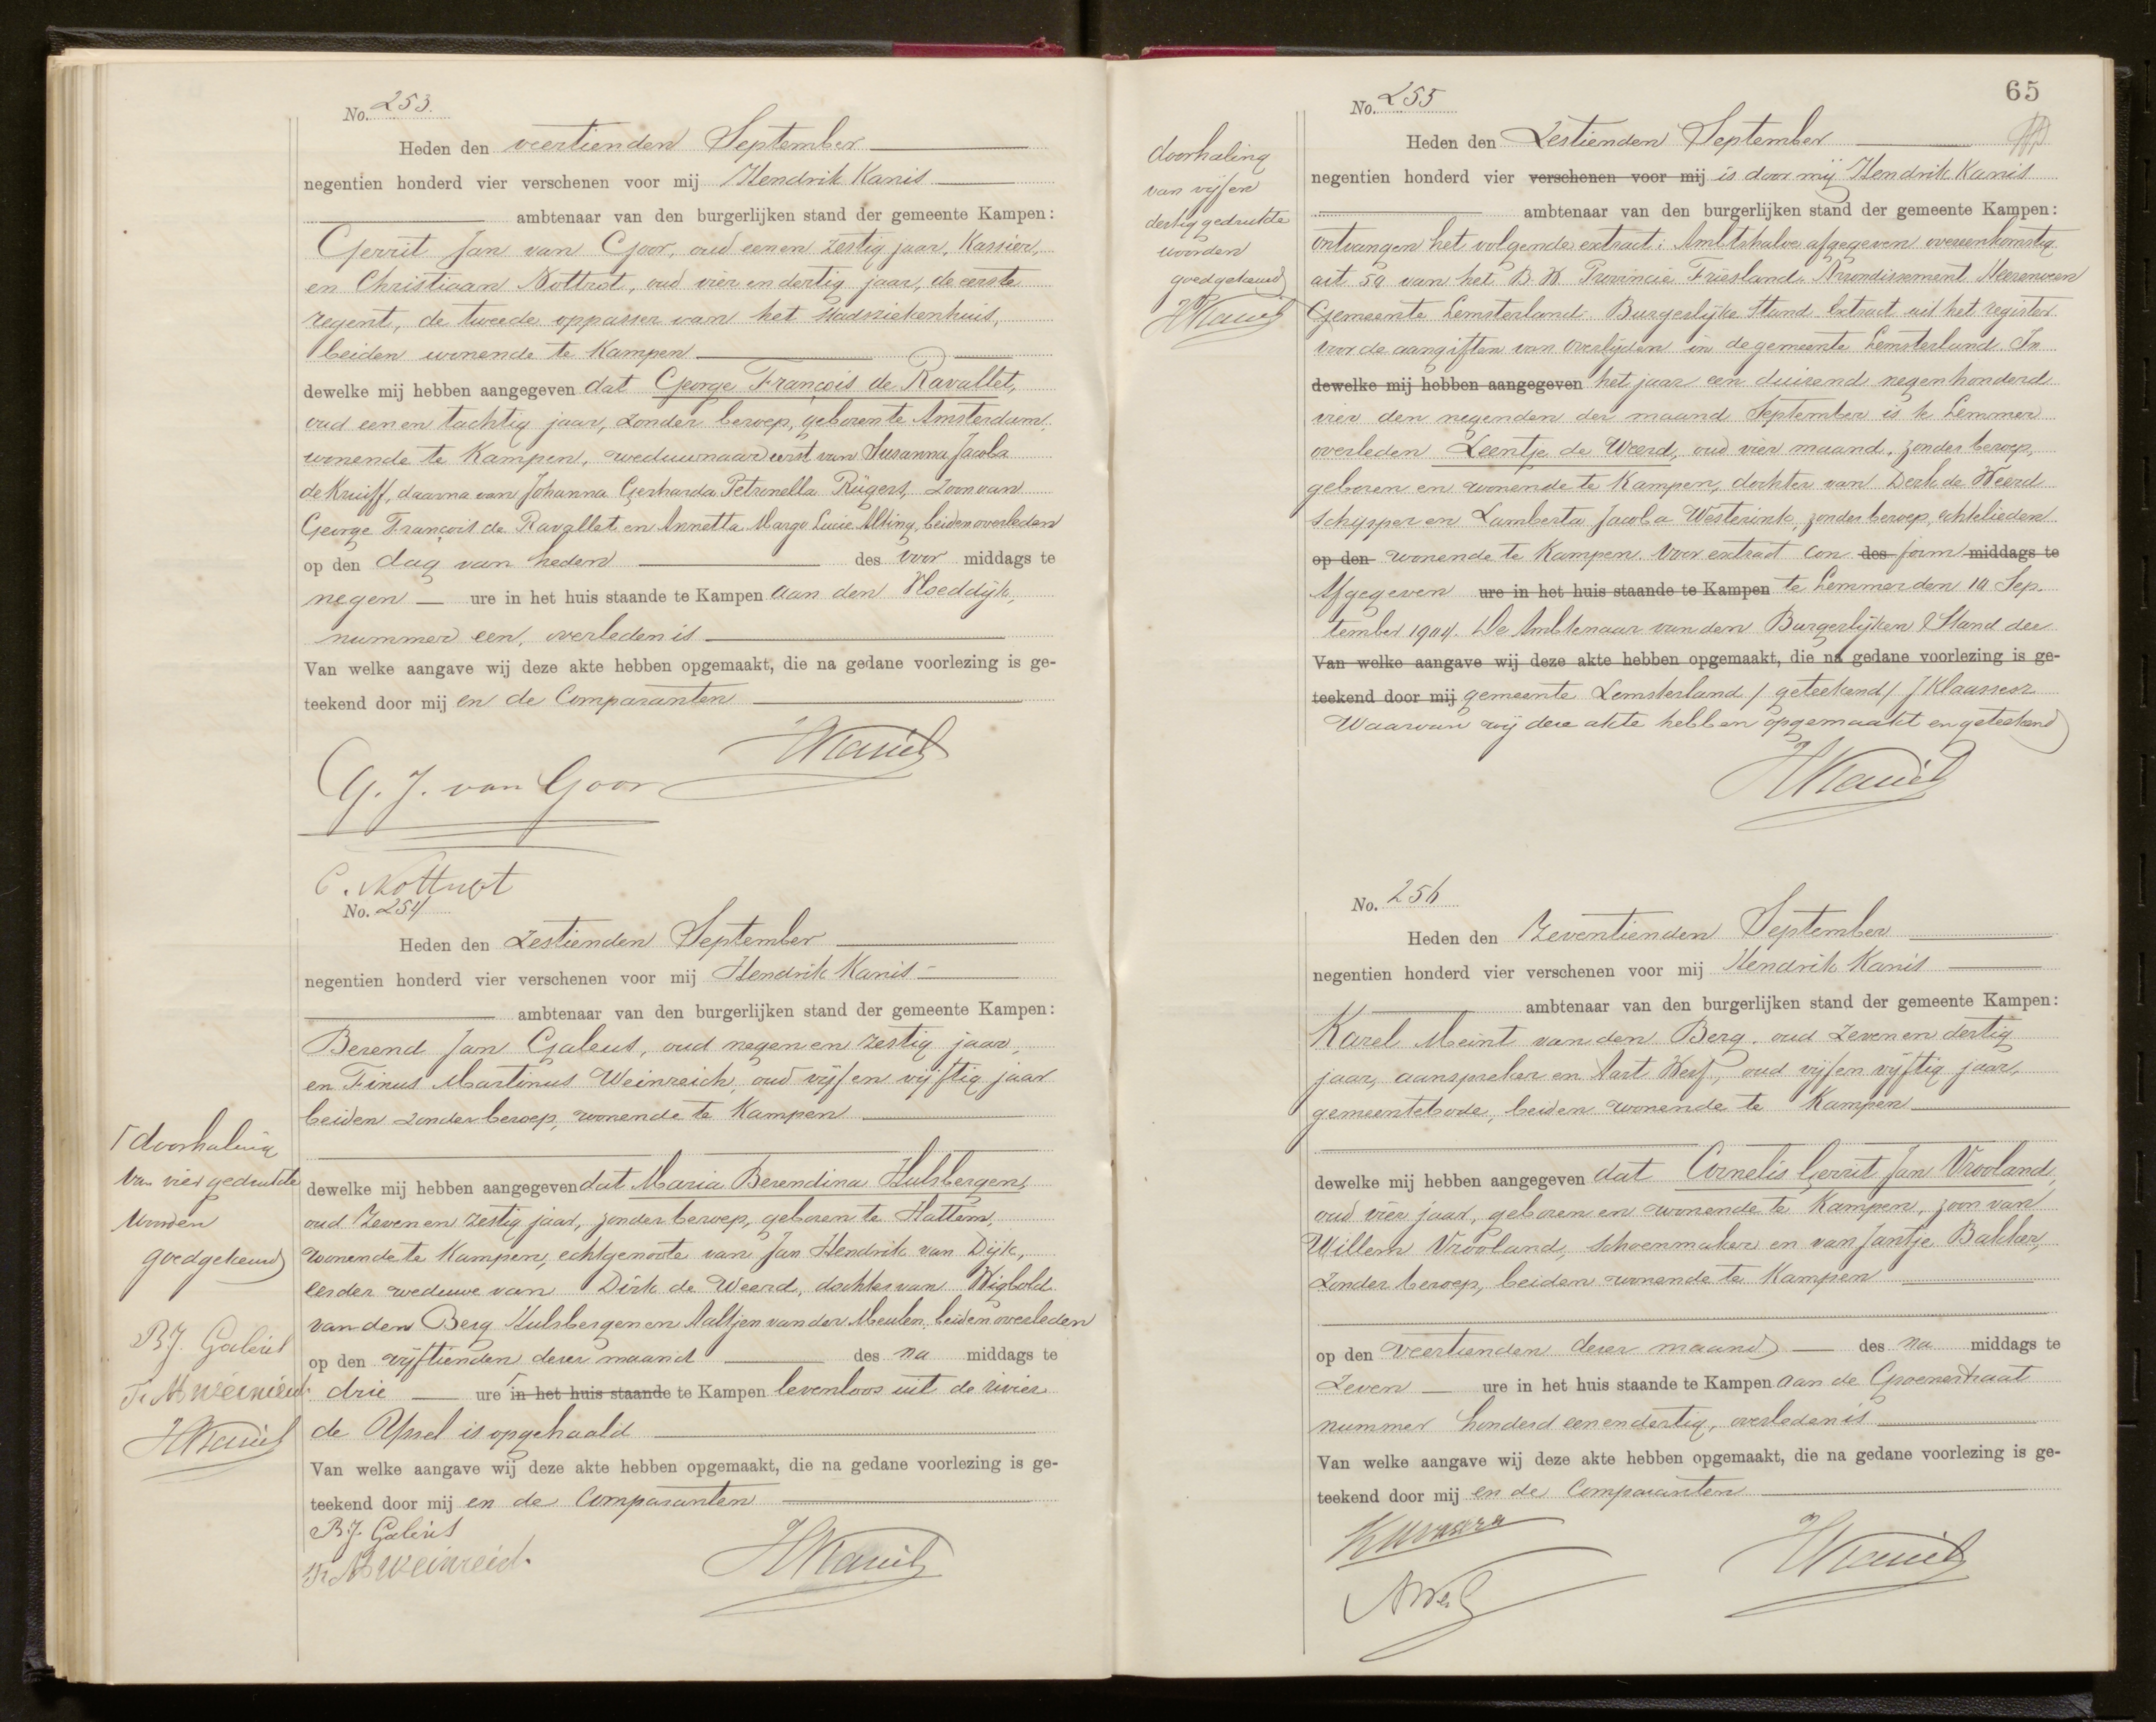 No. 253.
Heden den veertienden September
negentien honderd vier verschenen voor mij Hendrik Kanis
ambtenaar van den burgerlijken stand der gemeente Kampen:
Gerrit Jan van Goor, oud een en zestig jaar, Kassier,
en Christiaan Nottrot, oud vier en dertig jaar, de eerste
regent, de tweede oppasser van het Stadsziekenhuis,
beiden wonende te Kampen
dewelke mij hebben aangegeven dat George François de Ravallet,
oud een en tachtig jaar, zonder beroep, geboren te Amsterdam,
wonende te Kampen, weduwnaar eerst van Susanna Jacoba
de Kruijff, daarna van Johanna Gerharda Petronella Rügers, zoon van
George François de Ravallet en Annetta Margo Lucie Alting, beiden overleden
op den dag van heden des voor middags te
negen ure in het huis staande te Kampen aan den Vloeddijk,
nummer een, overleden is
Van welke aangave wij deze akte hebben opgemaakt, die na gedane voorlezing is ge-
teekend door mij en de Comparanten
HKanis
G. J. van Goor
C. Nottrot
No. 254
Heden den zestienden September
negentien honderd vier verschenen voor mij Hendrik Kanis
ambtenaar van den burgerlijken stand der gemeente Kampen:
Berend Jan Galeus, oud negen en zestig jaar,
en Finus Martinus Weinreich, oud vijf en vijftig jaar
beiden zonder beroep, wonende te Kampen
dewelke mij hebben aangegeven dat Maria Berendina Hulsbergen,
oud zeven en zestig jaar, zonder beroep, geboren te Hattem,
wonende te Kampen, echtgenoote van Jan Hendrik van Dijk,
eerder weduwe van Dirk de Weerd, dochter van Wigbold
van den Berg Hulsbergen en Aaltjen van der Meulen, beiden overleden
op den vijftienden dezer maand des na middags te
drie ure in het huis staande te Kampen levenloos uit de rivier
de IJssel is opgehaald
Van welke aangave wij deze akte hebben opgemaakt, die na gedane voorlezing is ge-
teekend door mij en de Comparanten
B.J. Galeus
HKanis
doorhaling
van vier gedrukte
woorden
goedgekeurd
B.J. Galeus
HKanis
65
No. 255
Heden den Zestienden September
negentien honderd vier verschenen voor mij is door mij Hendrik Kanis
ambtenaar van den burgerlijken stand der gemeente Kampen:
ontvangen het volgende extract: Ambtshalve afgegeven overeenkomstig
art 50 van het B.W. Provincie Friesland. Arrondissement Heerenveen
Gemeente Lemsterland Burgerlijke Stand Extract uit het register
voor de aangiften van overlijden in de gemeente Lemsterland In
dewelke mij hebben aangegeven het jaar een duizend negenhonderd
vier den negenden der maand September is te Lemmer
overleden Leentje de Weerd, oud vier maand, zonder beroep,
geboren en wonende te Kampen, dochter van Derk de Weerd
schipper en Lamberta Jacoba Westerink, zonder beroep, echtelieden
op den wonende te Kampen. Voor extract con des form middags te
Afgegeven ure in het huis staande te Kampen te Lemmer den 10 Sep-
tember 1904. De Ambtenaar van den Burgerlijken Stand der
Van welke aangave wij deze akte hebben opgemaakt, die na gedane voorlezing is ge-
teekend door mij gemeente Lemsterland / geteekend / J Klaassesz
Waarvan wij deze akte hebben opgemaakt en geteekend
HKanis
doorhaling
van vijf en
dertig gedrukte
woorden
goedgekeurd
HKanis
No. 256
Heden den Zeventienden September
negentien honderd vier verschenen voor mij Hendrik Kanis
ambtenaar van den burgerlijken stand der gemeente Kampen:
Karel Meint van den Berg, oud zeven en dertig
jaar, aanspreker en Aart Werf, oud vijf en vijftig jaar,
gemeentebode, beiden wonende te Kampen
dewelke mij hebben aangegeven dat Cornelis Gerrit Jan Vrooland,
oud vier jaar, geboren en wonende te Kampen, zoon van
Willem Vrooland, schoenmaker en van Jantje Bakker,
zonder beroep, beiden wonende te Kampen
op den veertienden dezer maand des na middags te
zeven ure in het huis staande te Kampen aan de Groenestraat
nummer honderd een en dertig, overleden is
Van welke aangave wij deze akte hebben opgemaakt, die na gedane voorlezing is ge-
teekend door mij en de Comparanten
HKanis
AWerf